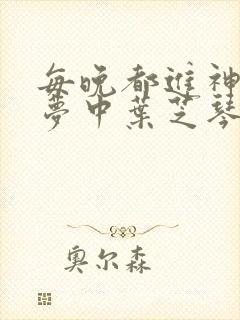 每晚都进神
夢中葉芝琴
奥尔森